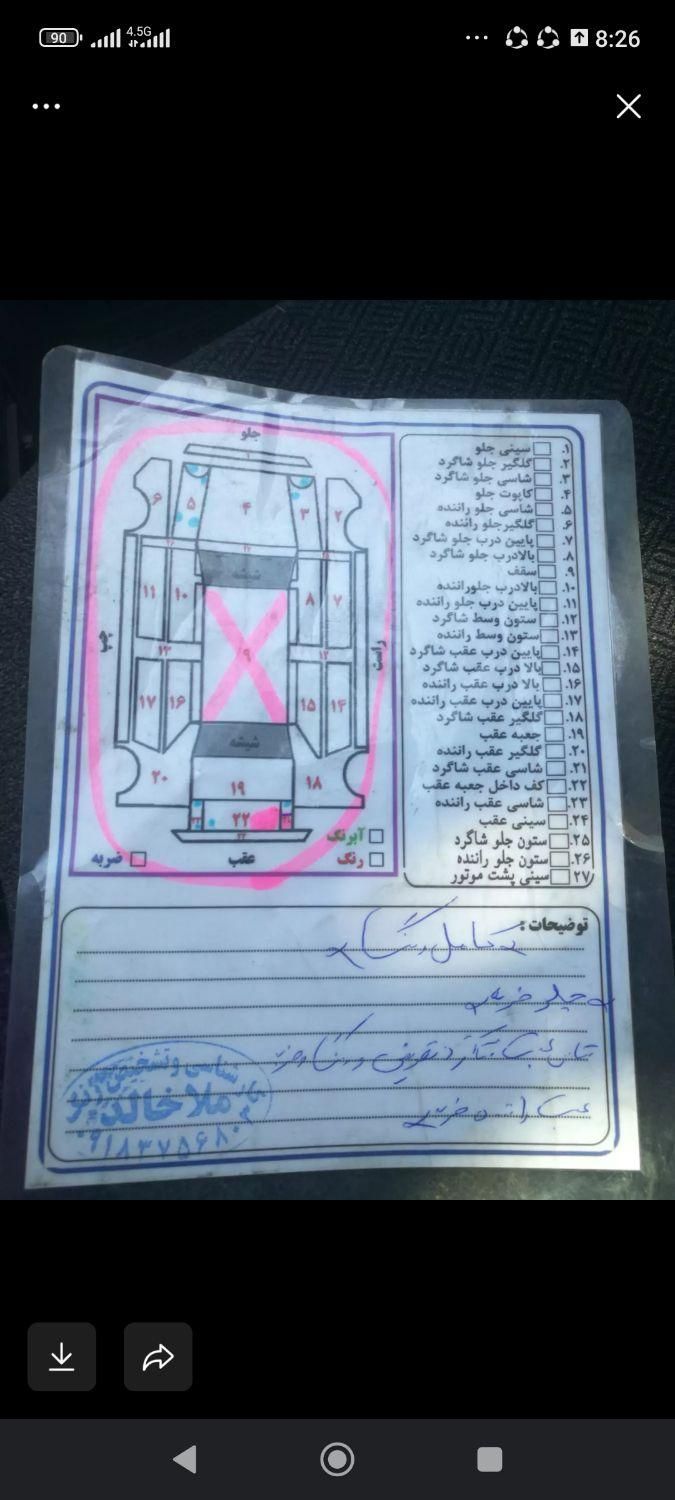 90
4.5G
8:26
جلو
۱
۶
۵
۴
۳
۲
شیشه
۱۱
۱۰
۹
۸
۷
چپ
راست
۱۳
۱۲
۱۷
۱۶
۱۵
۱۴
شیشه
۲۰
۱۹
۱۸
۲۲
عقب
آبرنگ
رنگ
ضربه
۱. سینی جلو
۲. گلگیر جلو شاگرد
۳. شاسی جلو شاگرد
۴. کاپوت جلو
۵. شاسی جلو راننده
۶. گلگیرجلو راننده
۷. پایین درب جلو شاگرد
۸. بالادرب جلو شاگرد
۹. سقف
۱۰. بالادرب جلوراننده
۱۱. پایین درب جلو راننده
۱۲. ستون وسط شاگرد
۱۳. ستون وسط راننده
۱۴. پایین درب عقب شاگرد
۱۵. بالا درب عقب شاگرد
۱۶. بالا درب عقب راننده
۱۷. پایین درب عقب راننده
۱۸. گلگیر عقب شاگرد
۱۹. جعبه عقب
۲۰. گلگیر عقب راننده
۲۱. شاسی عقب شاگرد
۲۲. کف داخل جعبه عقب
۲۳. شاسی عقب راننده
۲۴. سینی عقب
۲۵. ستون جلو شاگرد
۲۶. ستون جلو راننده
۲۷. سینی پشت موتور
توضیحات :
کامل رنگ
جلو ضربه
تعویض و رنگ
ضربه
ملا خالد